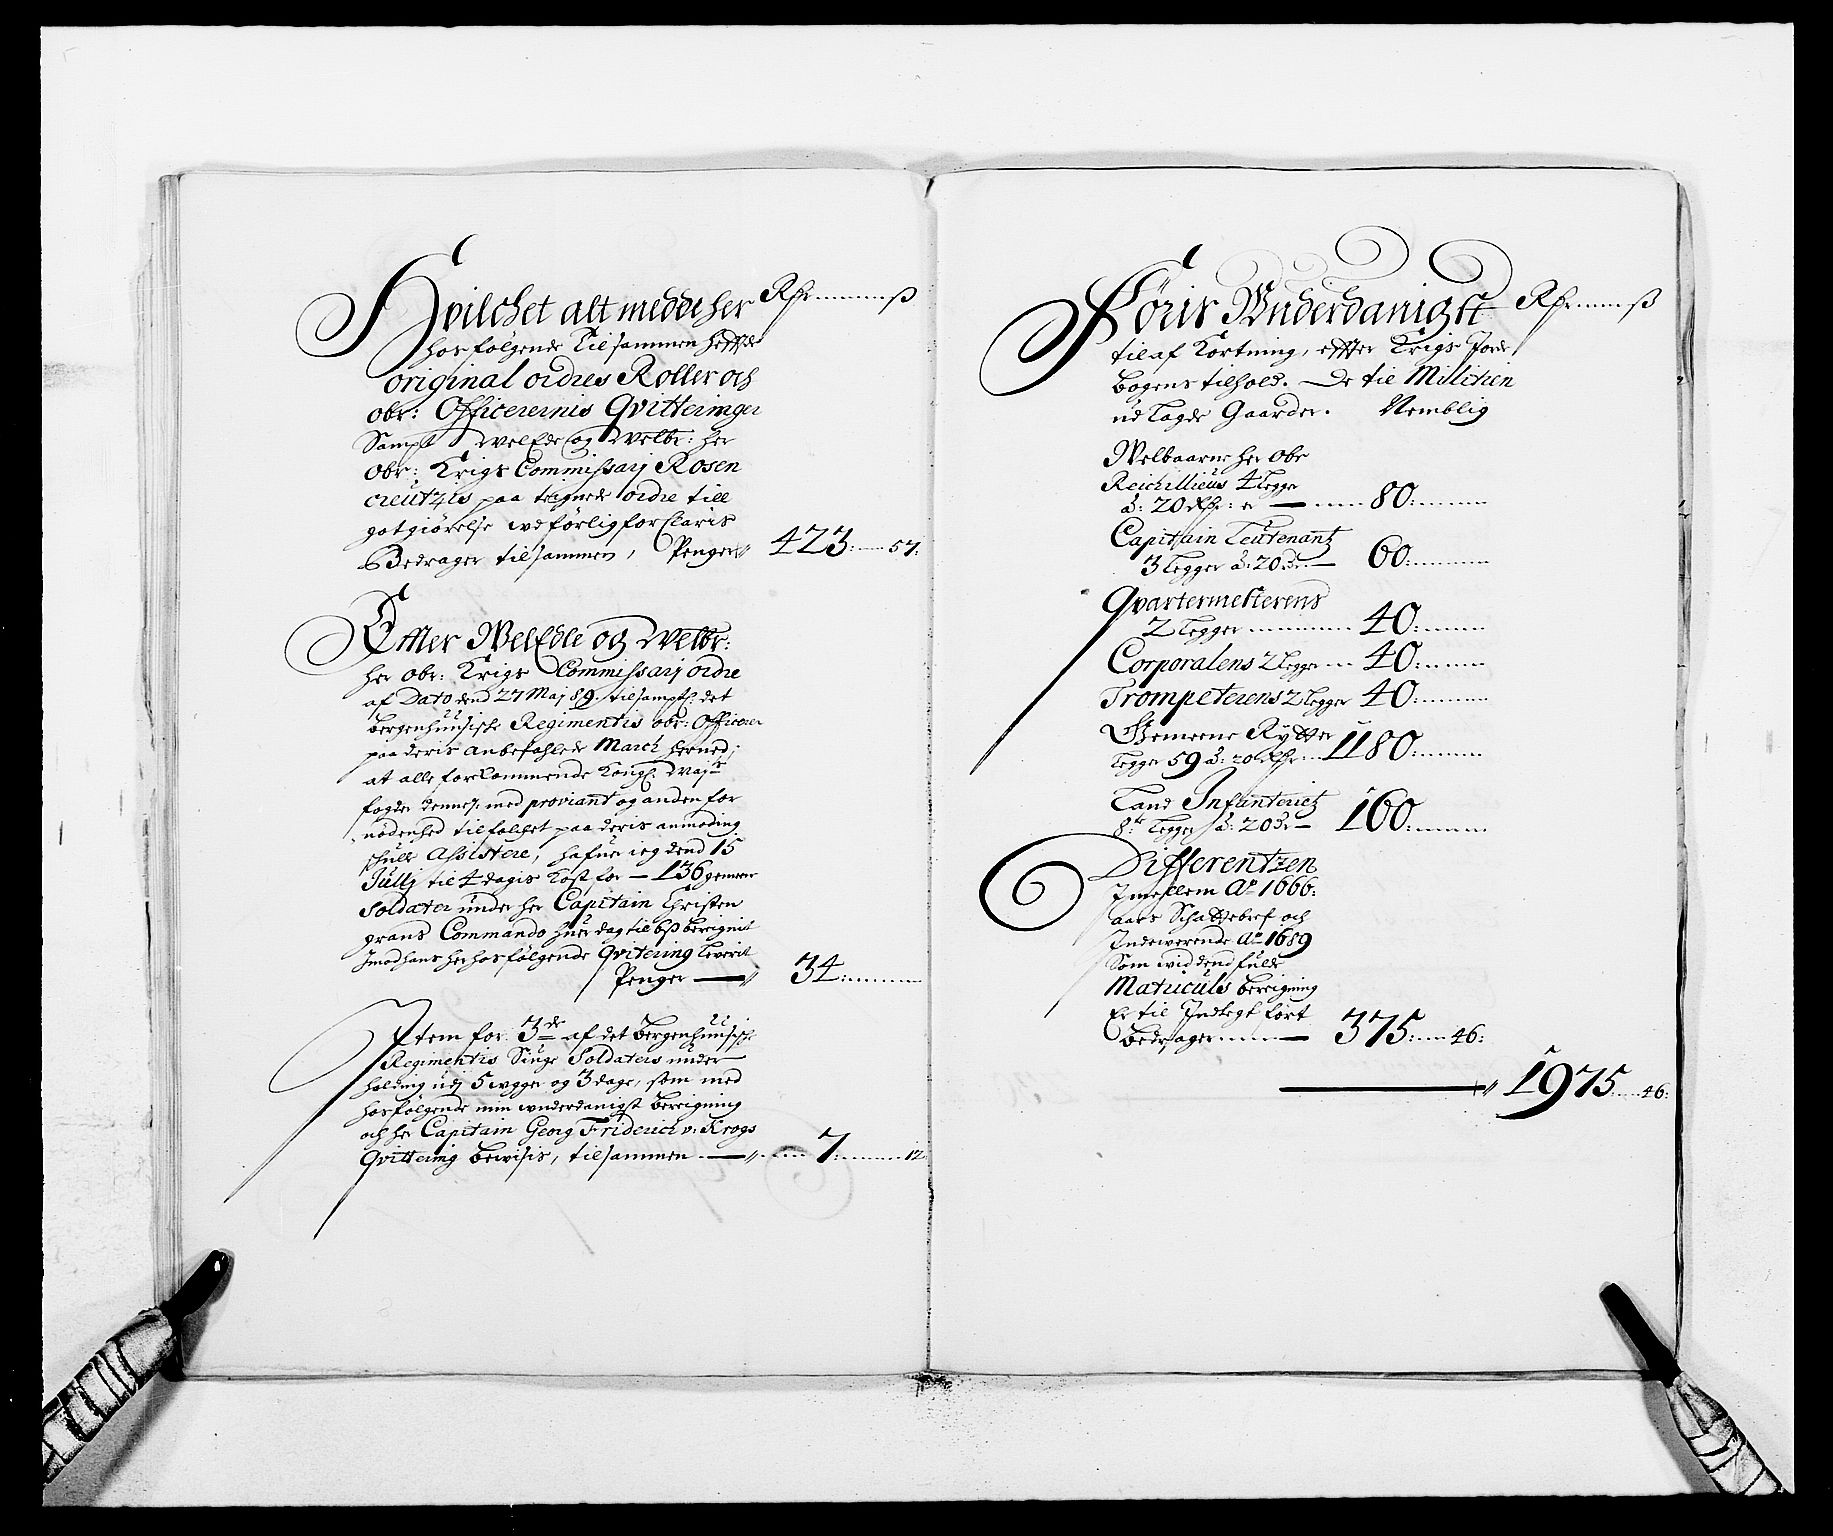 Hvilchet alt med de her Rdr ß
hosfølgende Tilsammen hefftede
original ordres Roller och
obr: Officerernis Qvitteringer
Sampt WelEdle og Welbr: her
obr: Krigs Commissarj Rosen
creutzis paa teignede ordre till
gotgiørelse widførlig forklaris
Bedrager tilsammen, Penger 423: 57:
Effter WelEdle og Welbr:
her obr: Krigs Commissarj ordre
af Dato dend 27 Maj 89. til sampt: det
bergenhuusiske Regimentis obr: Officerer
paa deris anbefahlede March herned;
at alle forekommende Kongl: Mays:
fogder dennes: med proviant og anden for
nødenhed til folchet paa deris anmoding
schulle Assistere, hafuer ieg dend 15
Jullj til 4 dagis Kost for – 136 gemeene
Soldater under her Capitain Christen
grans Commando huer dag til 6 ß beregnit
Imod hans her hosfølgende Qvitering leverit
Penger 34:
Item for 3de af det bergenhuusiske
Regimentis Siuge Soldaters under
holding udj 5 wger og 3 dage, som med
hosfølgende min underdanigst beregning
och her Capitain Georg Friderich v: Krogs
Qvittering bewisis, tilsammen 7: 12
Føris Underdanigst Rdr ß
til af Kortning, effter Krigs Jorde
bogens tilhold. De til Militien
ud lagde Gaarder. Nemblig
Welbaarne her obr
Reichillieus 4 legger
à: 20 Rdr: er 80:
Capitain Leutenant
3 legger à: 20 dr 60:
Qvartermesterens
2 legger 40:
Corporalens 2 legger 40:
Trompeterens 2 legger 40:
Gemeene Rytter
legger 59 à: 20 Rdr: 1180:
Land Infanteriet
8te legger à: 20 dr – 160:
Differentzen
Imellem Ao 1666:
aars Schattebref och
Indewerende Ao 1689
Som wid dend fulde
Matriculs beregning
Er til Indtegt ført
bedrager 375: 46:
1975 46: